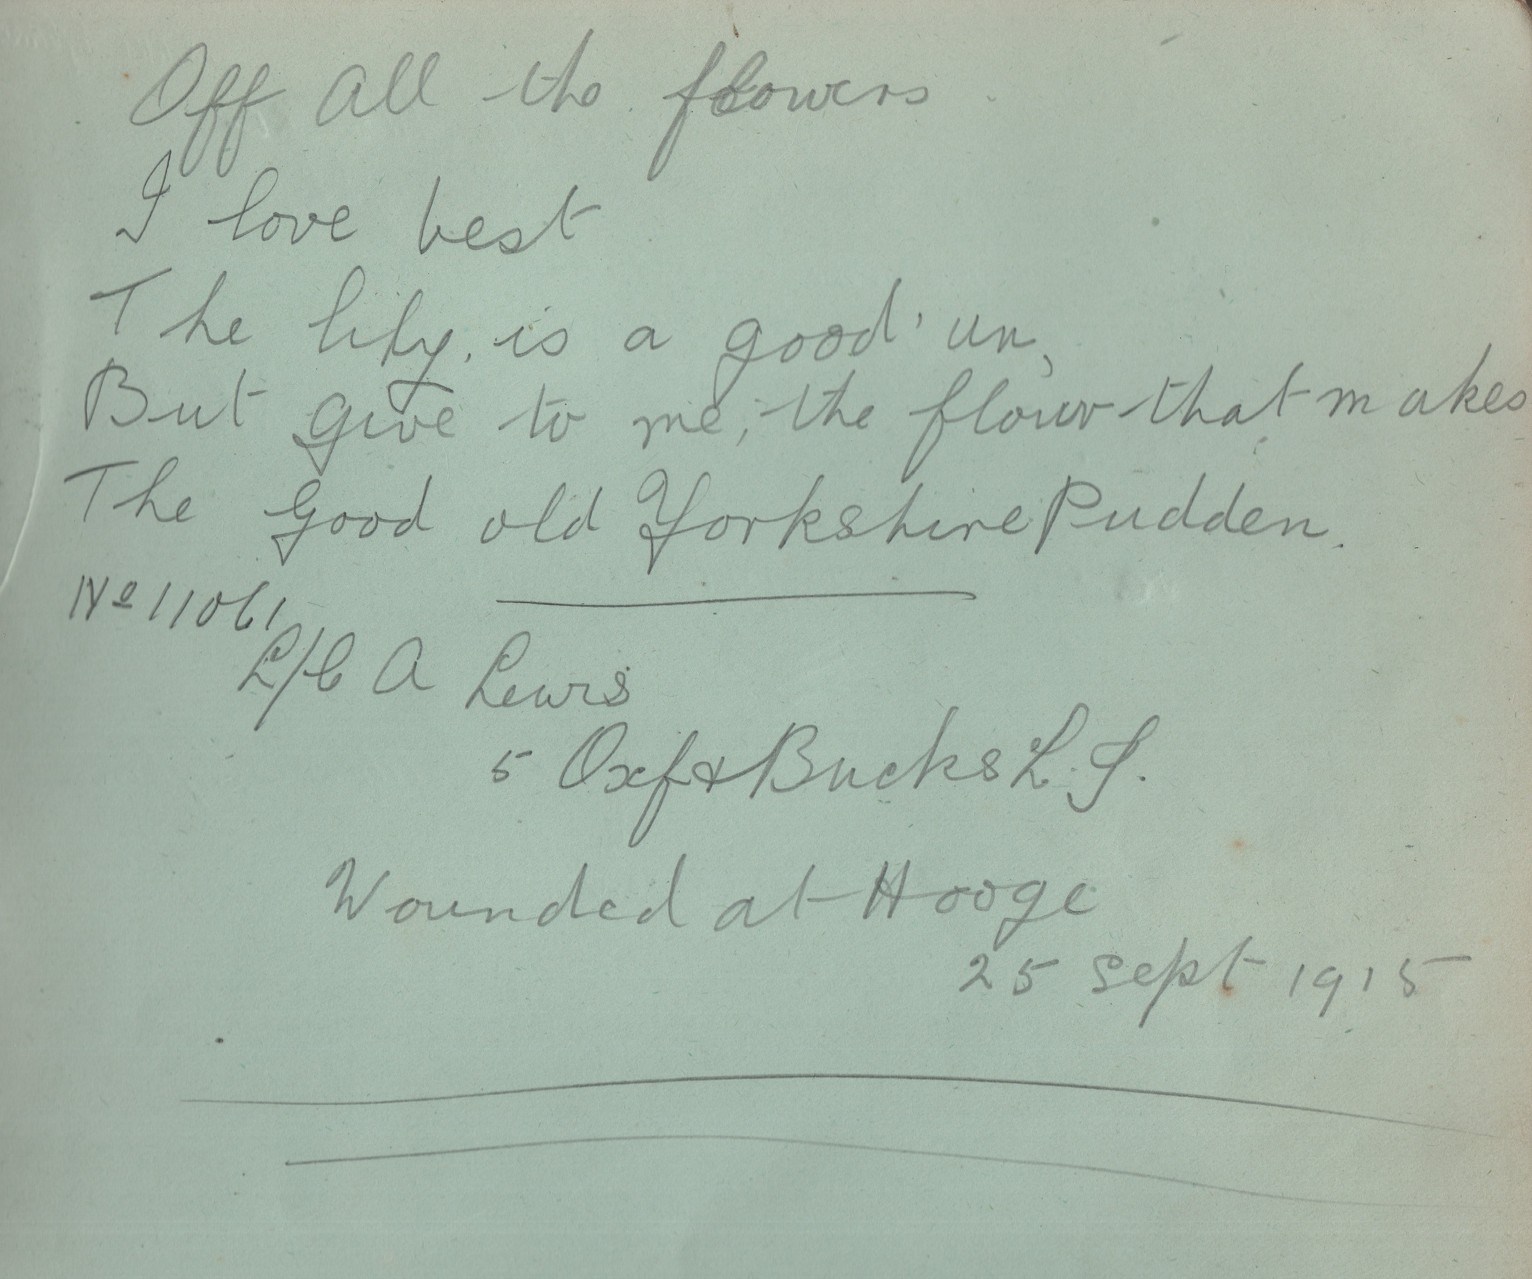 Off all the flowers
I love best
The lily, is a good 'un,
But give to me, the flour that makes
The Good old Yorkshire Pudden.
No 11061
L/C A Lewis
5 Oxf & Bucks L.I.
Wounded at Hooge
25 Sept 1915